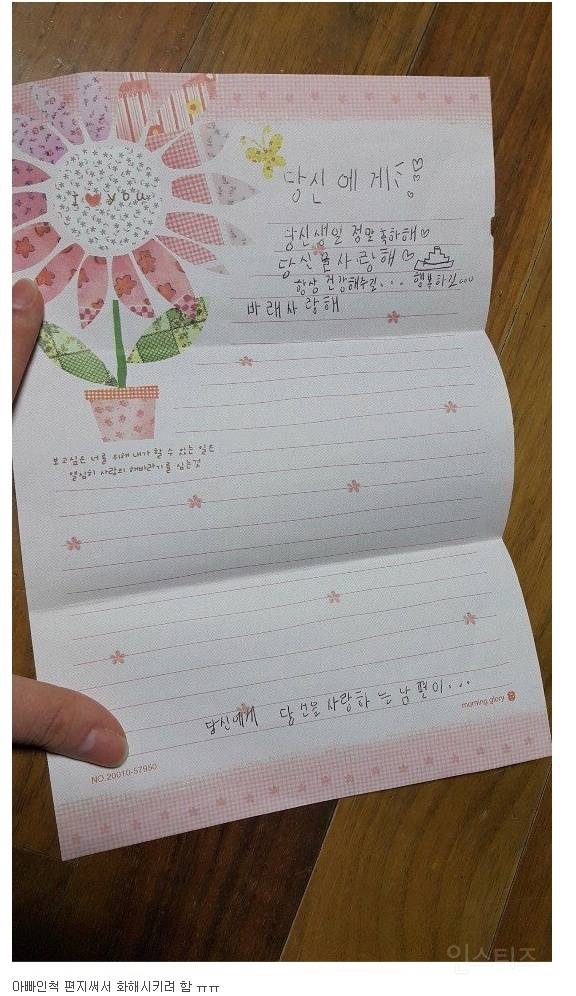 I ♥ you
당신에게 ♡
당신생일 정말 축하해♡
당신을사랑해♡
항상 건강해주길... 행복하길...
바래사랑해
보고싶은 너를 위해 내가 할 수 있는 일은
열심히 사랑의 해바라기를 심는것
당신에게 당신을사랑하는남편이...
morning glory
NO.20010-57950
인스티즈
아빠인척 편지써서 화해시키려 함 ㅠㅠ